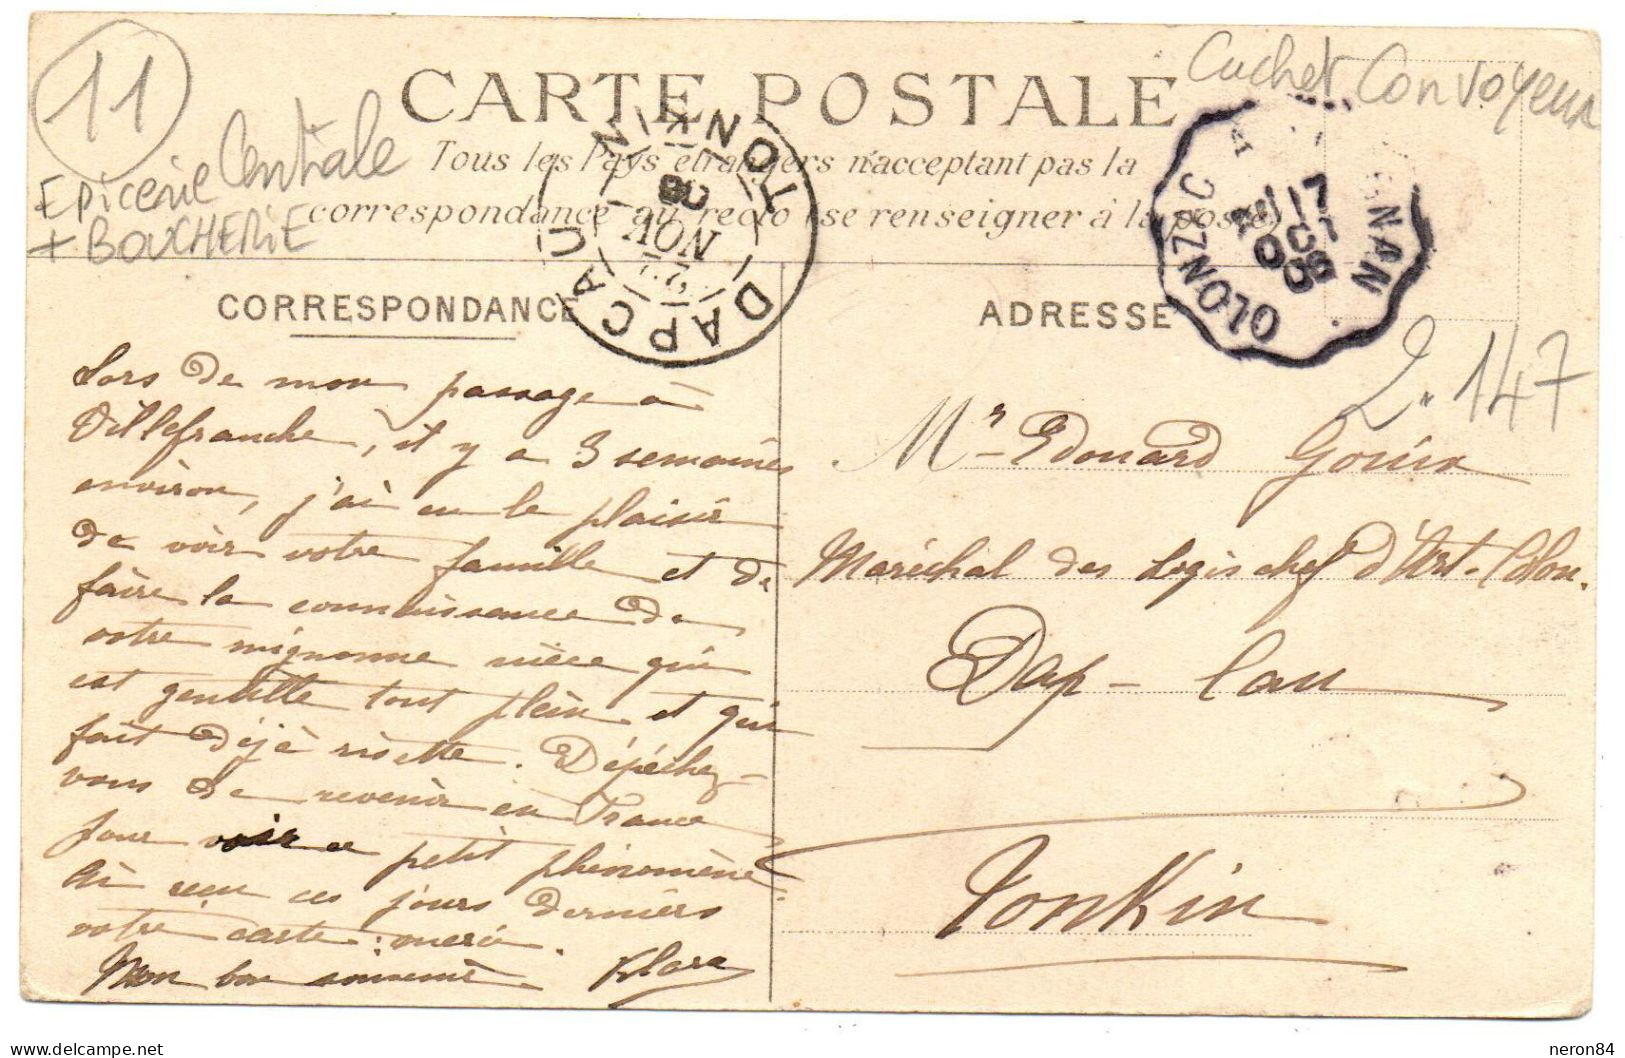 11
Epicerie Centrale
+ BOUCHERIE
Cachet Convoyeur
CARTE POSTALE
Tous les Pays étrangers n'acceptant pas la
correspondance au recto (se renseigner à la poste)
DAPCAU
TONKIN
NOV
08
OLONZAC
17
08
CORRESPONDANCE
ADRESSE
2.147
Lors de mon passage à
Villefranche, il y a 3 semaines
environ, j'ai eu le plaisir
de voir votre famille et de
faire la connaissance de
votre mignonne nièce qui
est gentille tout plein et qui
fait déjà risette. Dépéchez-
vous de revenir en France
pour voir ce petit phénomène.
Ai reçu ces jours derniers
votre carte : merci.
Mon bon souvenir. Klara
Mr Edouard
Maréchal des Logis chef d'Art. Colon.
Dap-Cau
Tonkin
neron84
www.delcampe.net